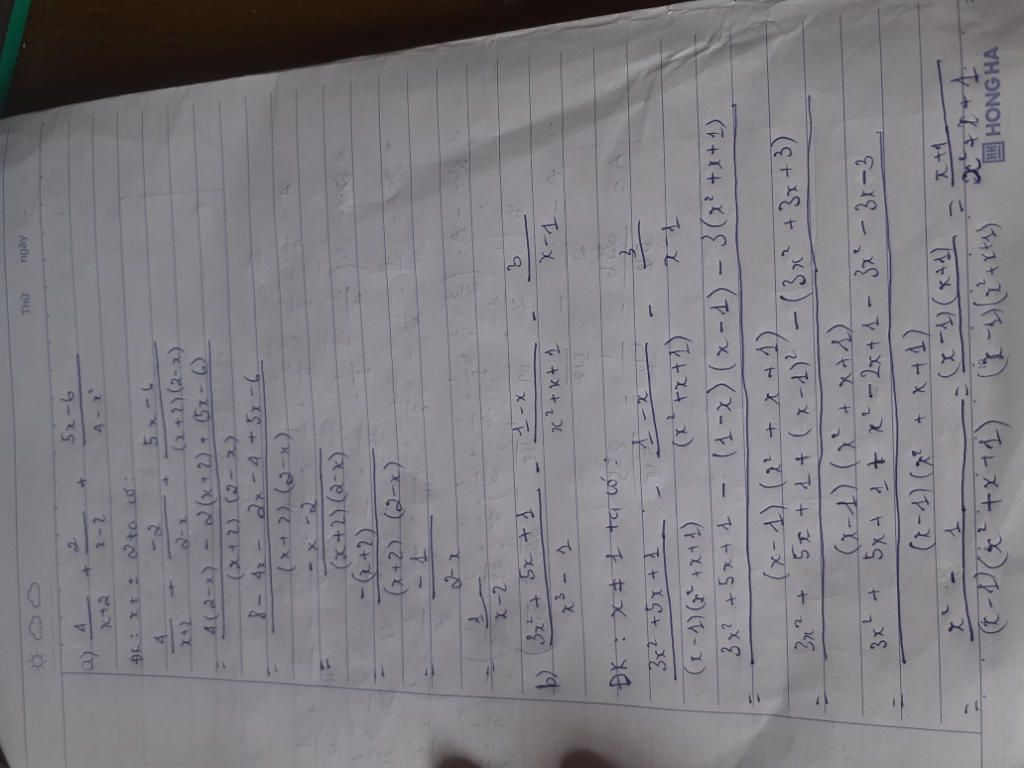 Thứ ngày
a) 4/(x+2) + 2/(x-2) + (5x-6)/(4-x²)
ĐK: x ≠ ± 2 ta có:
4/(x+2) + -2/(2-x) + (5x-6)/((x+2)(2-x))
= (4(2-x) - 2(x+2) + (5x-6))/((x+2)(2-x))
= (8-4x - 2x-4+5x-6)/((x+2)(2-x))
= (-x-2)/((x+2)(2-x))
= -(x+2)/((x+2)(2-x))
= -1/(2-x)
= 1/(x-2)
b) (3x²+5x+1)/(x³-1) - (1-x)/(x²+x+1) - 3/(x-1)
ĐK: x ≠ 1 ta có:
(3x²+5x+1)/((x-1)(x²+x+1)) - (1-x)/(x²+x+1) - 3/(x-1)
= (3x²+5x+1 - (1-x)(x-1) - 3(x²+x+1))/((x-1)(x²+x+1))
= (3x²+5x+1+(x-1)² - (3x²+3x+3))/((x-1)(x²+x+1))
= (3x²+5x+1+x²-2x+1-3x²-3x-3)/((x-1)(x²+x+1))
= (x²-1)/((x-1)(x²+x+1)) = ((x-1)(x+1))/((x-1)(x²+x+1)) = (x+1)/(x²+x+1)
HONG HA